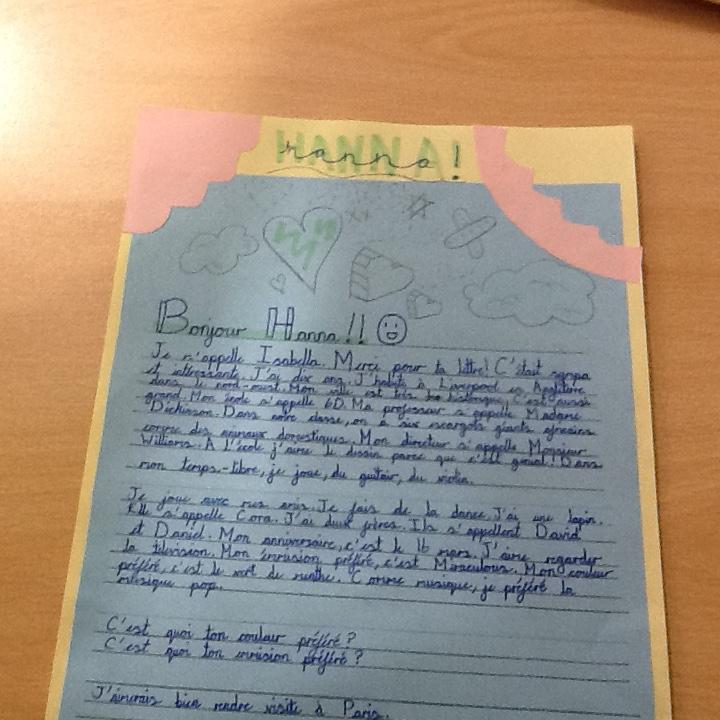 HANNA!
Hanna!
Bonjour Hanna!!
Je m'appelle Isabella. Merci pour ta lettre! C'était sympa
et intéressante. J'ai dix ans. J'habite à Liverpool en Angleterre
dans le nord-ouest. Mon ville est très historique. C'est aussi
grand. Mon école s'appelle 6D. Ma professeur s'appelle Madame
Dickinson. Dans notre classe, on a six escargots géants africains
comme des animaux domestiques. Mon directeur s'appelle Monsieur
Williams. A l'école j'aime le dessin parce que c'est génial! Dans
mon temps-libre, je joue, du guitair, du violin.
Je joue avec mes amis. Je fais de la dance. J'ai une lapin.
Elle s'appelle Cora. J'ai deux frères. Ils s'appellent David
et Daniel. Mon anniversaire, c'est le 16 mars. J'aime regarder
la télévision. Mon émission préféré, c'est Miraculous. Mon couleur
préféré, c'est le vert du menthe. Comme musique, je préféré la
musique pop.
C'est quoi ton couleur préféré?
C'est quoi ton émission préféré?
J'aimerais bien rendre visite à Paris.